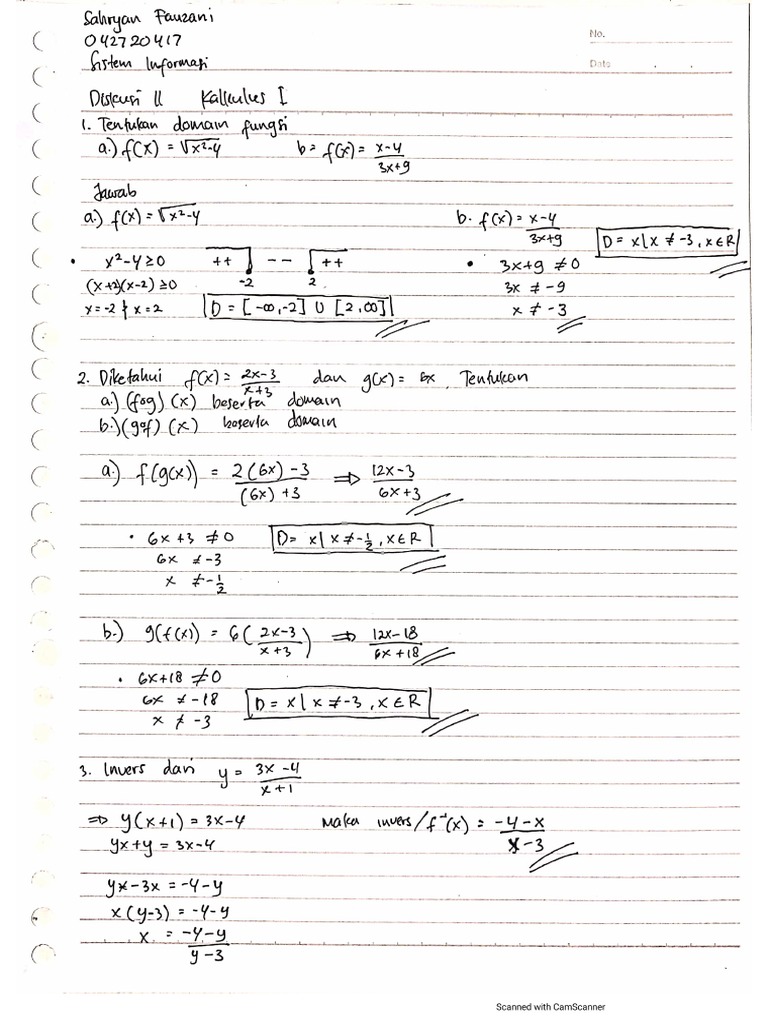 Sahryan Fauzani
042720417
Sistem Informasi
No.
Date
Diskusi II Kallculus I
1. Tentukan domain fungsi
a.) f(x) = √x²-4 b= f(x) = x-4/3x+9
Jawab
a.) f(x) = √x²-4
• x²-4 ≥ 0 ++ -- ++
-2 2
(x+2)(x-2) ≥ 0
x = -2 } x = 2 D = [-∞, -2] ∪ [2, ∞]
b. f(x) = x-4/3x+9 D = x | x ≠ -3, x ∈ R
• 3x+9 ≠ 0
3x ≠ -9
x ≠ -3
2. Diketahui f(x) = 2x-3/x+3 dan g(x) = 6x, Tentukan
a.) (fog) (x) beserta domain
b.) (gof) (x) beserta domain
a.) f(g(x)) = 2(6x) -3/(6x) +3 ⇒ 12x-3/6x+3
• 6x +3 ≠ 0 D = x | x ≠ -1/2, x ∈ R
6x ≠ -3
x ≠ -1/2
b.) g(f(x)) = 6(2x-3/x+3) ⇒ 12x-18/6x+18
• 6x+18 ≠ 0
6x ≠ -18 D = x | x ≠ -3, x ∈ R
x ≠ -3
3. Invers dari y = 3x -4/x+1
⇒ y(x+1) = 3x-4 Maka invers/f⁻¹(x) = -4-x/x-3
yx+y = 3x-4
yx-3x = -4-y
x(y-3) = -4-y
x = -4-y/y-3
Scanned with CamScanner